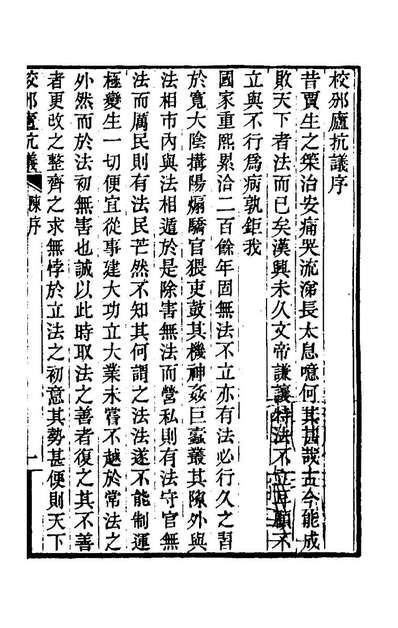 校邠廬抗議序
昔賈生之策治安痛哭流涕長太息噫何其甚哉古今能成
敗天下者法而已矣漢興未久文帝謙讓特法不立耳願不
立與不行為病孰鉅我
國家重熙累洽二百餘年固無法不立亦有法必行久之習
於寬大陰搆陽煽驕官猥吏鼓其機神姦巨蠹叢其隙外與
法相市內與法相遁於是除害無法而營私則有法守官無
法而厲民則有法民芒然不知其何謂之法法遂不能制運
極變生一切便宜從事建大功立大業未嘗不越於常法之
外然而於法初無害也誠以此時取法之善者復之其不善
者更改之整齊之求無悖於立法之初意其勢甚便則天下
校邠廬抗議 陳序 一